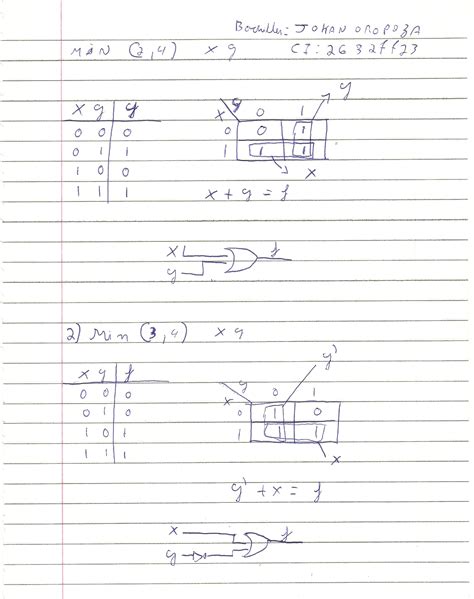 Bachiller: JOHAN OROPOZA
MIN (2,4) x y CI: 26327723
x y f
0 0 0
0 1 1
1 0 0
1 1 1
y
x
0 1
0 0 1
1 1 1
y
x
x + y = f
x
y
f
2) Min (3,4) x y
x y f
0 0 0
0 1 0
1 0 1
1 1 1
y'
y
x
0 1
0 1 0
1 1 1
x
y' + x = f
x
y
f